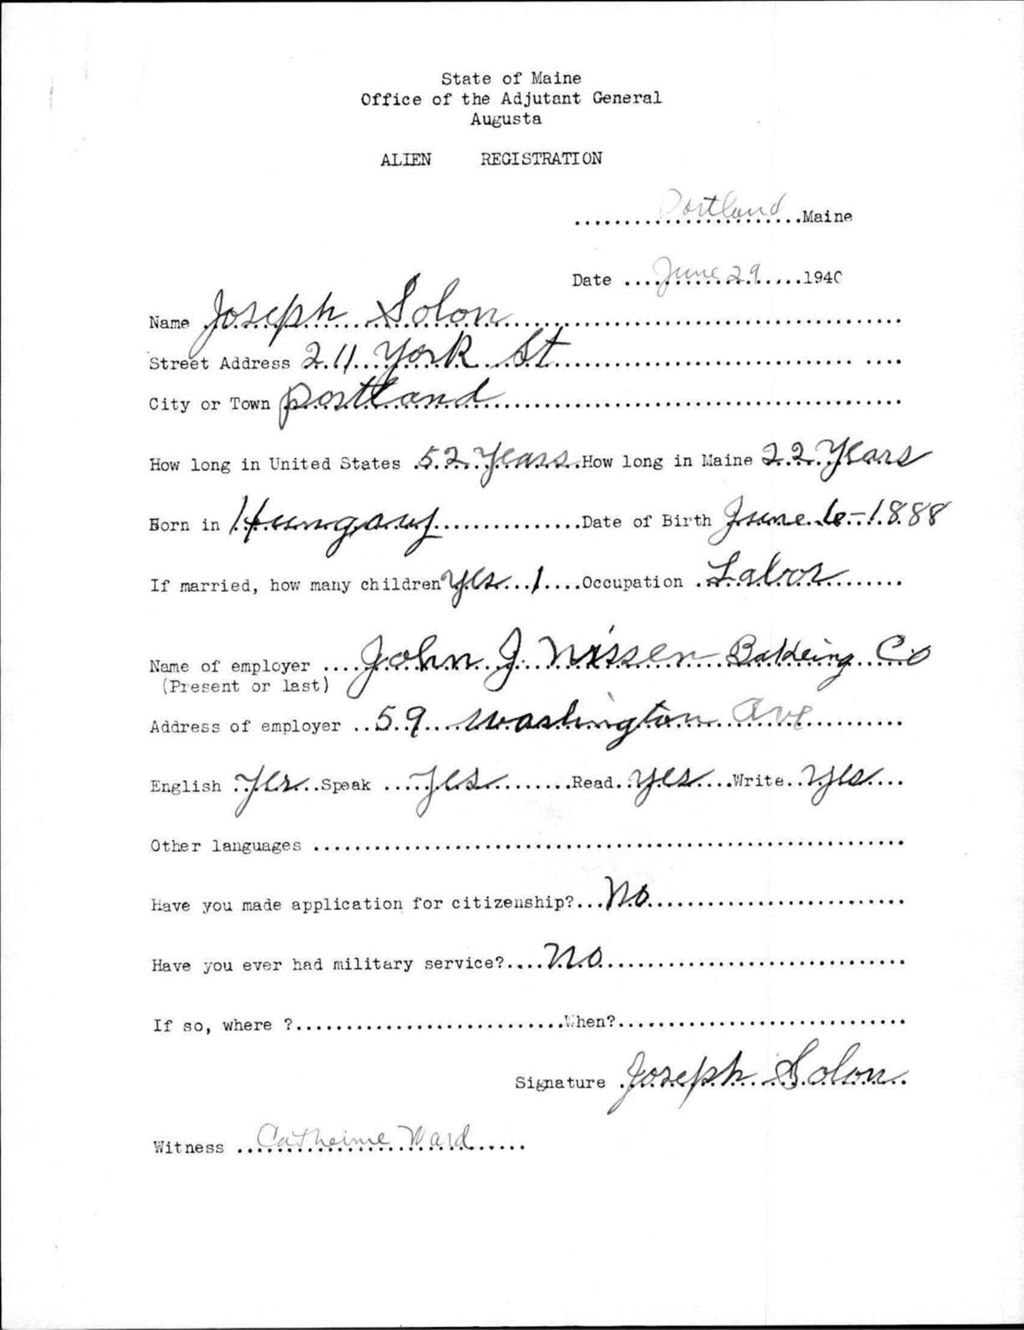 State of Maine
Office of the Adjutant General
Augusta
ALIEN REGISTRATION
Portland Maine
Date June 29 1940
Name Joseph Solon
Street Address 211 York St
City or Town Portland
How long in United States 52 Years How long in Maine 22 Years
Born in Hungary Date of Birth June 6-1888
If married, how many children yes 1 Occupation Labor
Name of employer John J. Nissen Bakeing Co
(Present or last)
Address of employer 59 Washington Ave
English Yes Speak Yes Read yes Write yes
Other languages
Have you made application for citizenship? No
Have you ever had military service? No
If so, where ? When?
Signature Joseph Solon
Witness Catherine Ward